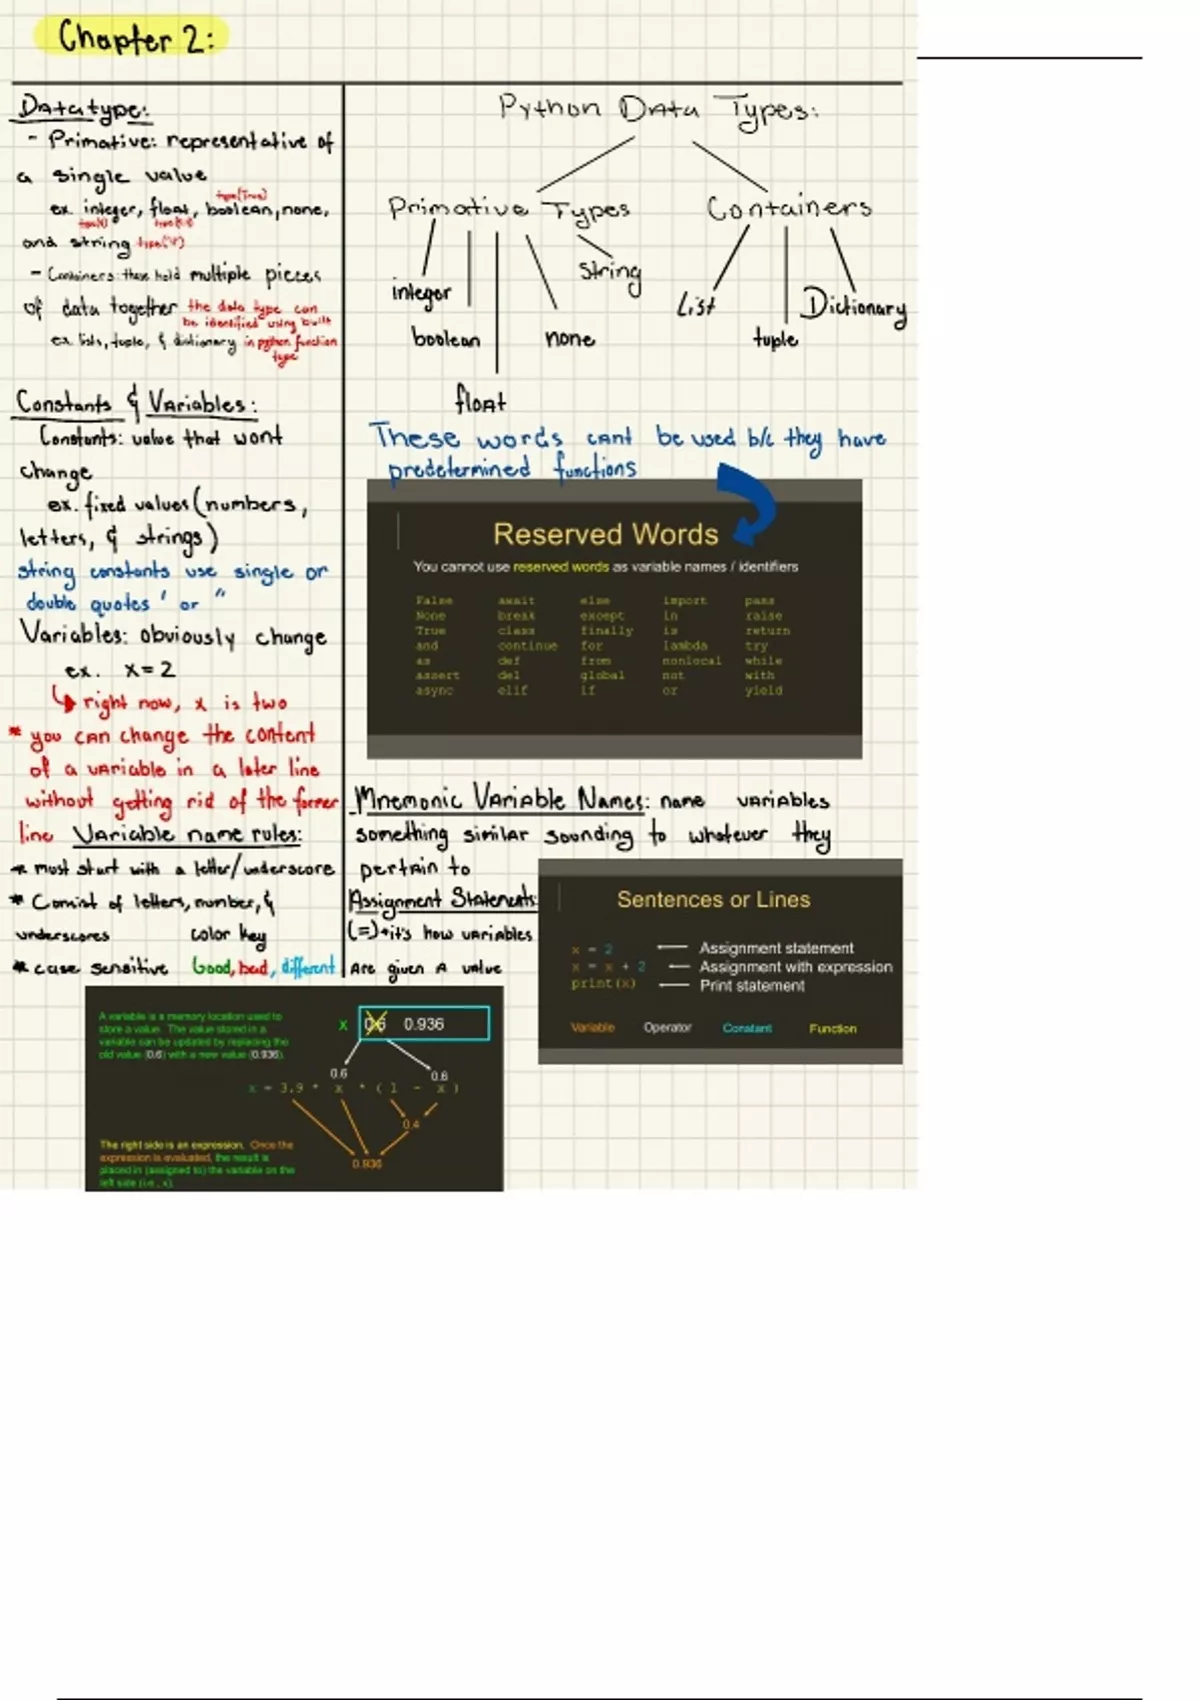 Chapter 2:
Datatype:
- Primative: representative of
a single value
type(True)
ex. integer, float, boolean, none,
and string
- Containers: these hold multiple pieces
of data together the data type can
be identified using built
ex. lists, tuple, & dictionary in python function
type
Constants & Variables:
Constants: value that wont
change
ex. fixed values (numbers,
letters, & strings)
string constants use single or
double quotes ' or "
Variables: obviously change
ex. x = 2
right now, x is two
* you can change the content
of a variable in a later line
without getting rid of the former
line Variable name rules:
* must start with a letter/underscore
* Consist of letters, number, &
underscores color key
* case sensitive Good, bad, different
Python Data Types:
Primative Types Containers
integer string List Dictionary
boolean none tuple
float
These words cant be used b/c they have
predetermined functions
Reserved Words
You cannot use reserved words as variable names / identifiers
False await else import pass
None break except in raise
True class finally is return
and continue for lambda try
as def from nonlocal while
assert del global not with
async elif if or yield
Mnemonic Variable Names: name variables
something similar sounding to whatever they
pertain to
Assignment Statements:
(=) it's how variables
are given a value
Sentences or Lines
x = 2 Assignment statement
x = x + 2 Assignment with expression
print(x) Print statement
Variable Operator Constant Function
A variable is a memory location used to
store a value. The value stored in a
variable can be updated by replacing the
old value (0.6) with a new value (0.936).
x 0.6 0.936
0.6 0.6
x = 3.9 * x * ( 1 - x )
0.4
0.936
The right side is an expression. Once the
expression is evaluated, the result is
placed in (assigned to) the variable on the
left side (i.e., x).